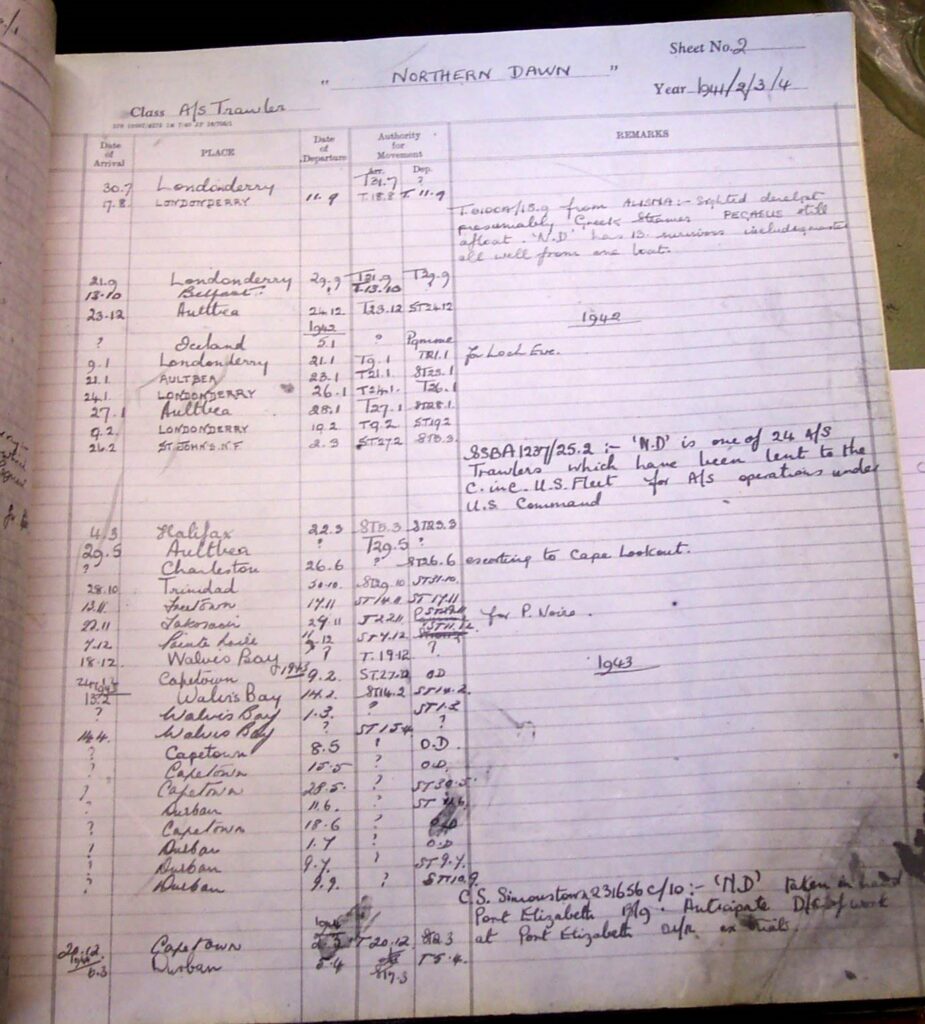 Sheet No. 2
" NORTHERN DAWN "
Year 1941/2/3/4
Class A/S Trawler
Date of Arrival PLACE Date of Departure Authority for Movement REMARKS
Arr. Dep.
30.7 Londonderry T31.7 ?
17.8 LONDONDERRY 11.9 T.18.8 T.11.9
T.0100A/15.9 from ALISMA:- Sighted derelict
presumably Greek Steamer PEGASUS still
afloat. 'N.D' has 13 survivors including master
all well from one boat.
21.9 Londonderry 29.9 T21.9 T29.9
13.10 Belfast ? T.13.10
23.12 Aultbea 24.12 T23.12 ST24.12
1942 1942
? Iceland 5.1 ?
9.1 Londonderry 21.1 T9.1 T21.1 for Loch Ewe.
21.1 AULTBEA 23.1 T21.1 ST23.1
24.1 LONDONDERRY 26.1 T24.1 T26.1
27.1 Aultbea 28.1 T27.1 ST28.1
9.2 LONDONDERRY 19.2 T9.2 ST19.2
26.2 ST JOHN'S. N.F 2.3 ST27.2 ST3.3
SSBA 1237/25.2 :- 'N.D' is one of 24 A/S
Trawlers which have been lent to the
C. inc. U.S. Fleet for A/S operations under
U.S. Command
4.3 Halifax 22.3 ST5.3 ST23.3
29.5 Aultbea ? T29.5 ?
? Charleston 26.6 ? ST26.6 escorting to Cape Lookout.
28.10 Trinidad 30.10 ST29.10 ST31.10
13.11 Freetown 17.11 ST14.11 ST17.11
22.11 Takoradi 29.11 T22.11 for P. Noire.
7.12 Pointe Noire .12 ST7.12 ST11.12
18.12 Walvis Bay ? T.19.12 ?
1943
Capetown 1943 9.2 ST.27.12 O.D
1943
13.2 Walvis Bay 14.2 ST14.2 ST14.2
? Walvis Bay 1.3 ? ST1.3
14.4 Walvis Bay ? ST15.4 ?
? Capetown 8.5 ? O.D
? Capetown 15.5 ? O.D
? Capetown 28.5 ? ST30.5
? Durban 11.6 ? ST11.6
? Capetown 18.6 ? O.D
? Durban 1.7 ? O.D
? Durban 9.7 ? ST9.7.
? Durban 9.9 ? ST10.9
C.S. Simonstown 231656 C/10 :- 'N.D' taken in hand
Port Elizabeth 17/9. Anticipate D/C of work
at Port Elizabeth trials.
1944
20.12 Capetown 2.3 T20.12 ST2.3
1944
6.3 Durban 5.4 ST7.3 T5.4.